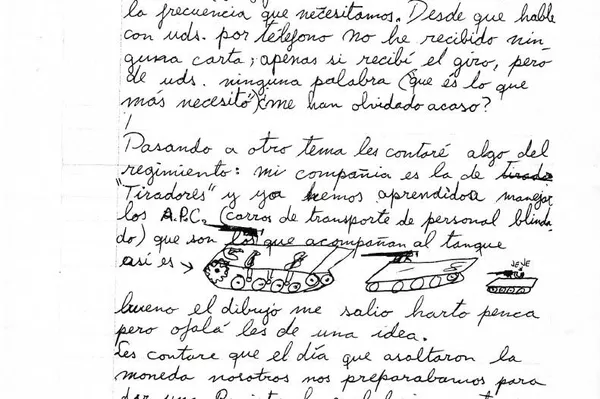 la frecuencia que necesitamos. Desde que hable
con uds. por teléfono no he recibido nin
guna carta; apenas si recibí el giro, pero
de uds. ninguna palabra (que es lo que
más necesito) ¿me han olvidado acaso?
Pasando a otro tema les contaré algo del
regimiento: mi compañia es la de
"Tiradores" y ya hemos aprendido a manejar
los A.P.C. (carros de transporte de personal blinda
do) que son los que acompañan al tanque
así es →
JEJE
bueno el dibujo me salio harto penca
pero ojalá les de una idea.
Les contare que el día que asaltaron la
moneda nosotros nos preparabamos para